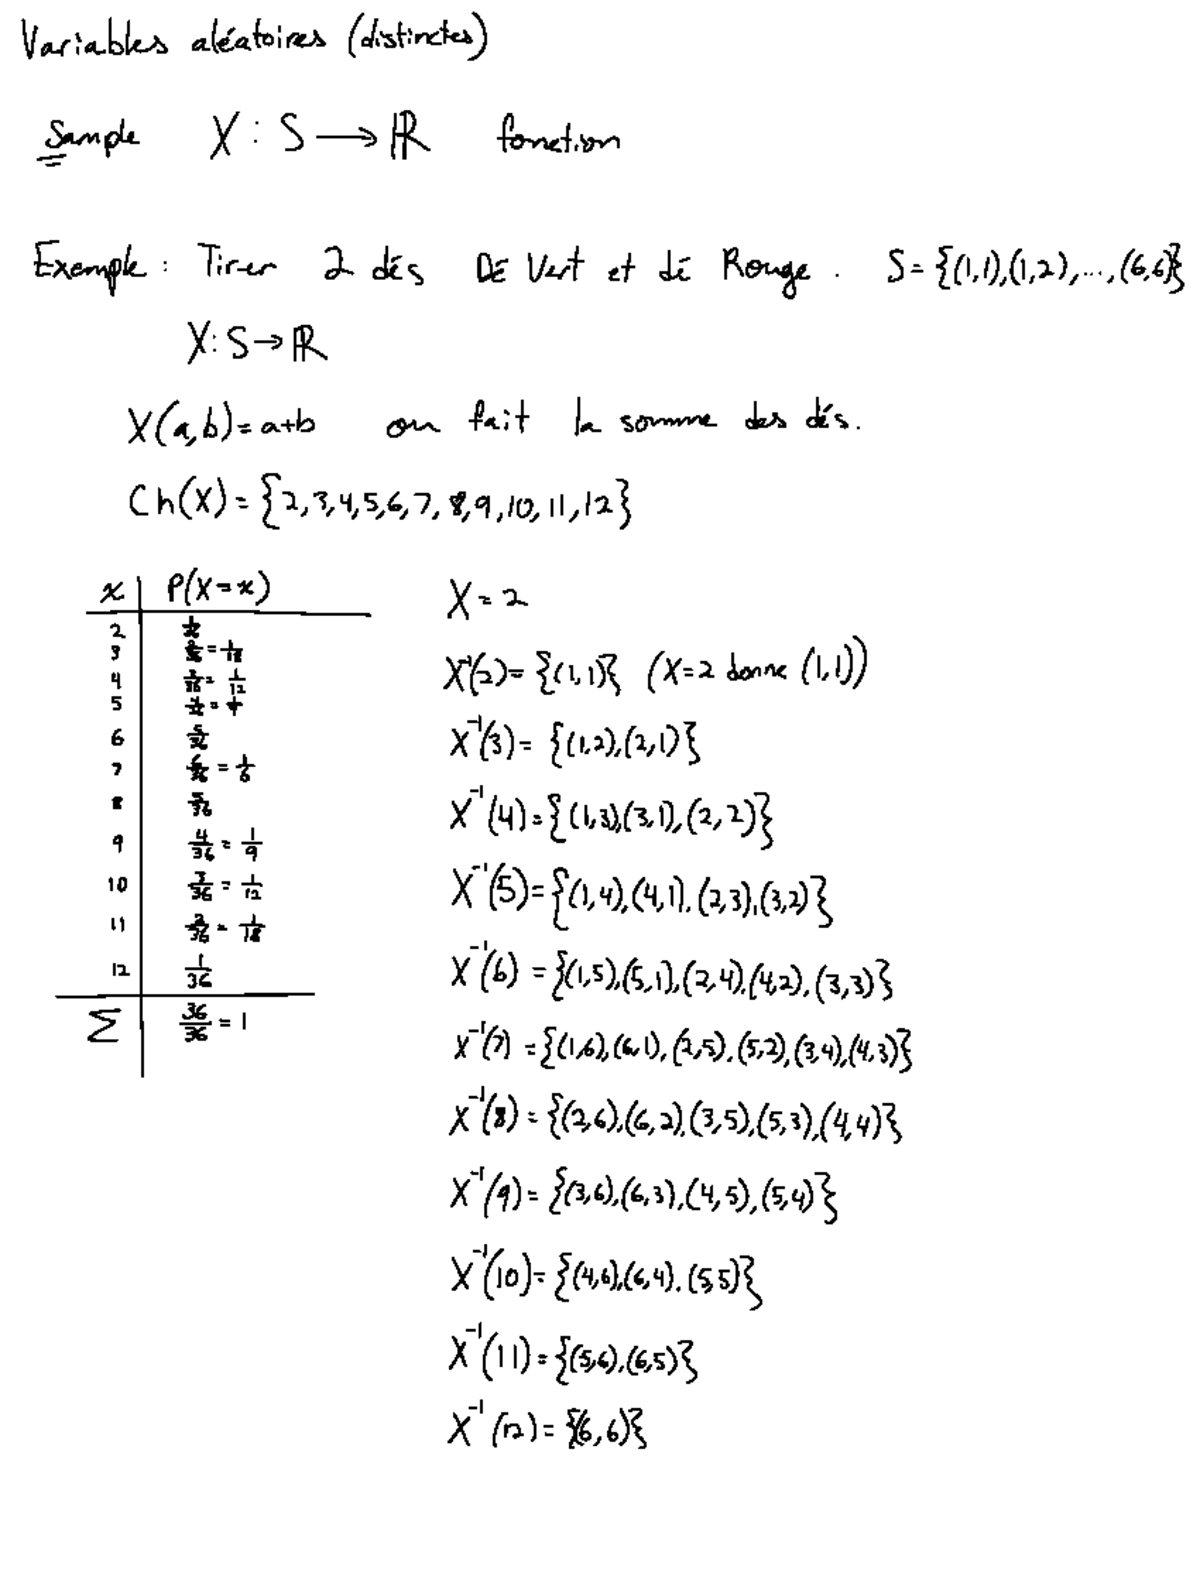 Variables aléatoires (distinctes)
Sample X : S → ℝ fonction
Exemple : Tirer 2 dés Dé Vert et dé Rouge. S = {(1,1),(1,2),...,(6,6)}
X: S → ℝ
X(a,b) = a+b on fait la somme des dés.
Ch(X) = {2,3,4,5,6,7,8,9,10,11,12}
x P(X=x)
2 1/36
3 2/36 = 1/18
4 3/36 = 1/12
5 4/36 =
6 5/36
7 6/36 = 1/6
8 5/36
9 4/36 = 1/9
10 3/36 = 1/12
11 2/36 = 1/18
12 1/36
Σ 36/36 = 1
X = 2
X⁻¹(2) = {(1,1)} (X=2 donne (1,1))
X⁻¹(3) = {(1,2),(2,1)}
X⁻¹(4) = {(1,3),(3,1),(2,2)}
X⁻¹(5) = {(1,4),(4,1),(2,3),(3,2)}
X⁻¹(6) = {(1,5),(5,1),(2,4),(4,2),(3,3)}
X⁻¹(7) = {(1,6),(6,1),(2,5),(5,2),(3,4),(4,3)}
X⁻¹(8) = {(2,6),(6,2),(3,5),(5,3),(4,4)}
X⁻¹(9) = {(3,6),(6,3),(4,5),(5,4)}
X⁻¹(10) = {(4,6),(6,4),(5,5)}
X⁻¹(11) = {(5,6),(6,5)}
X⁻¹(12) = {(6,6)}